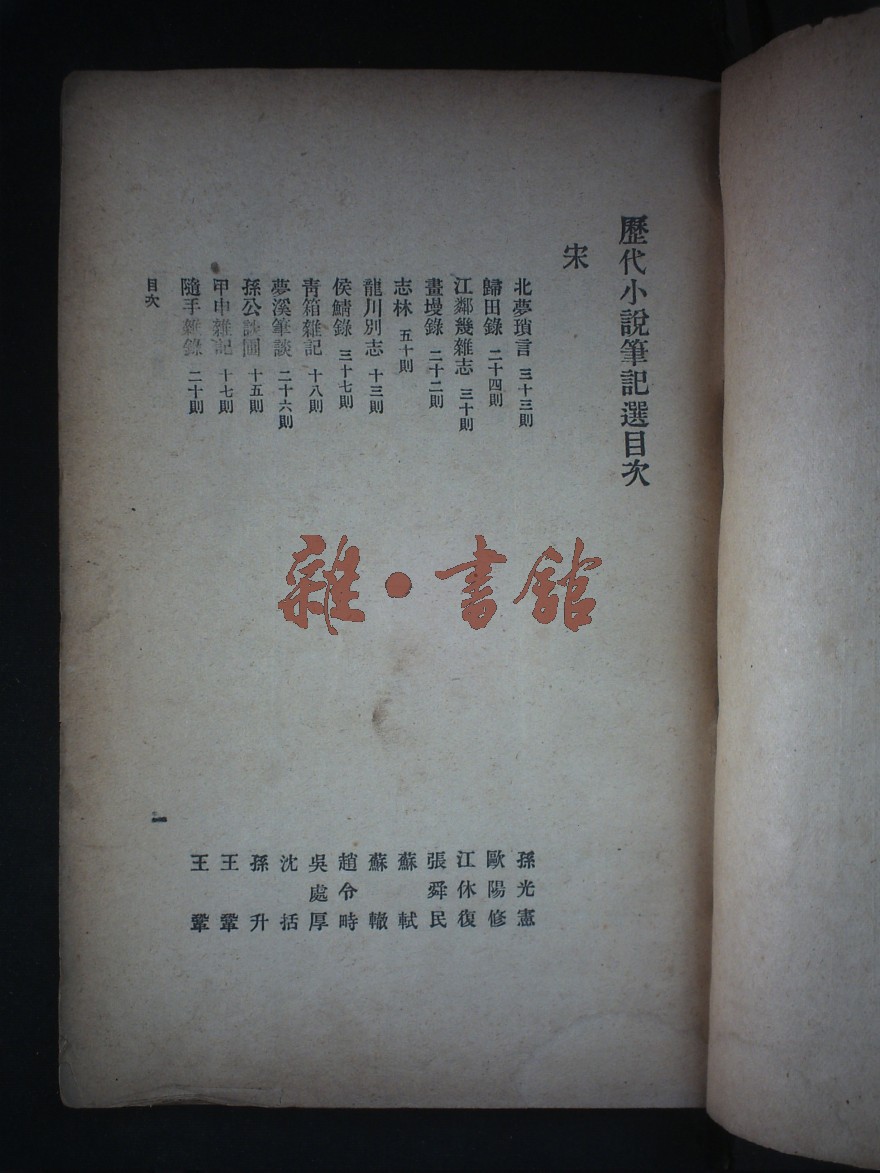 歷代小說筆記選目次
宋
北夢瑣言 三十三則 孫光憲
歸田錄 二十四則 歐陽修
江鄰幾雜志 三十則 江休復
畫墁錄 二十二則 張舜民
志林 五十則 蘇軾
龍川別志 十三則 蘇轍
侯鯖錄 三十七則 趙令時
青箱雜記 十八則 吳處厚
夢溪筆談 二十六則 沈括
孫公談圃 十五則 孫升
甲申雜記 十七則 王鞏
隨手雜錄 二十則 王鞏
目次
一
雜·書館